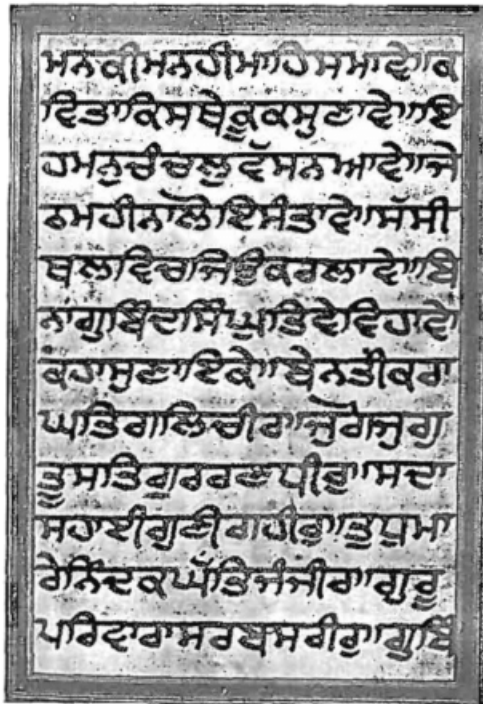 ਮਨਕੀਮਨਹੀਮਾਹਿਸਮਾਵੇ॥ਕ
ਵਿਤਾਕਿਸਥੇਕੂਕਸੁਣਾਵੇ॥ਇ
ਹਮਨੁਚੰਚਲੁਵੱਸਨਆਵੇ॥ਜੇ
ਠਮਹੀਨਾਲੋਇਸੰਤਾਵੇ॥ਸੱਸੀ
ਥਲਵਿਚਜਿਉਂਕਰਲਾਵੇ॥ਬਿ
ਨਾਗੁਬਿੰਦਸਿੰਘੁਾਤਿਵੇਵਿਹਾਵੇ
ਕਹਾਸੁਣਾਇਕੇ॥ਬੇਨਤੀਕਰਾ
ਘਾਤਿਗਲਿਚੀਰਾ॥ਜੁਗੋਜੁਗੁ
ਤੂਸਾਤਿਗੁਰਰਣਧੀਰੁ॥ਸਦਾ
ਸਹਾਈਗੁਣੀਗਹੀਰੁ॥ਤੁਧੁਮਾ
ਰੇਨਿੰਦਕਘੱਤਿਜੰਜੀਰਾ॥ਗੁਰੂ
ਪਰਿਵਾਰਾਸਰਬਸਰੀਰੁ॥ਗੁਬਿੰ